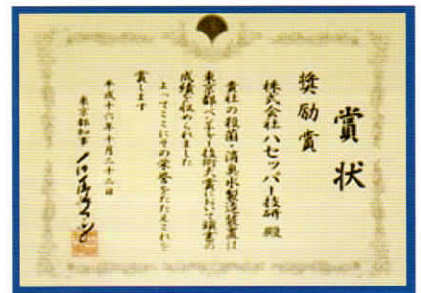 賞状
奨励賞
株式会社ハセッパー技研 殿
貴社の殺菌・消臭水製造装置は
東京都ベンチャー技術大賞において頭書の
成績を収められました
よってここにその栄誉をたたえこれを
賞します
平成十六年十月二十二日
東京都知事 石原慎太郎